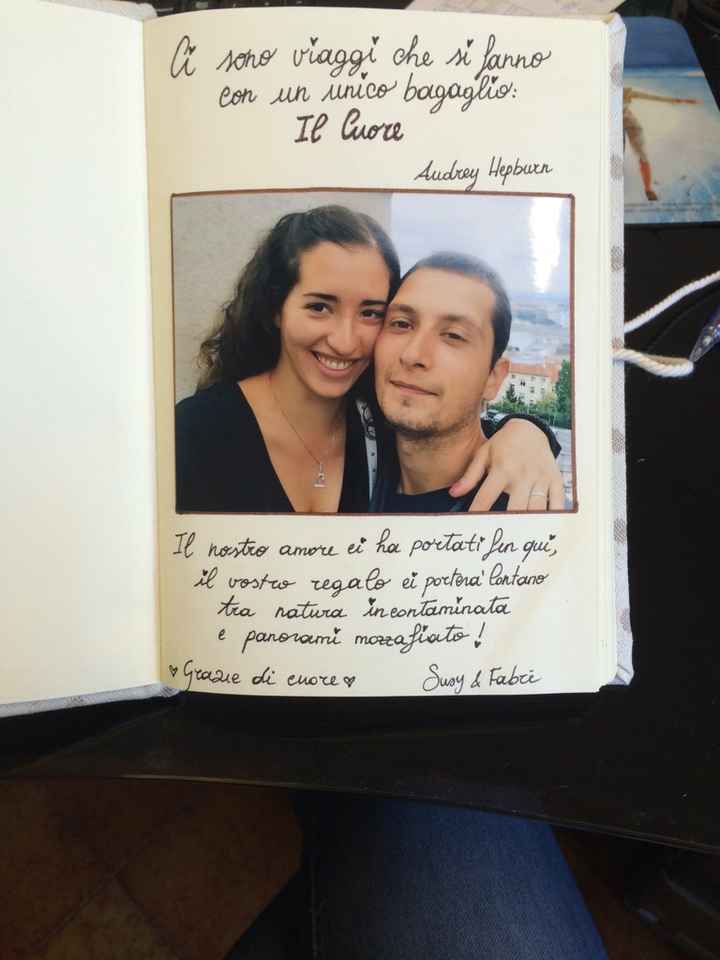 Ci sono viaggi che si fanno
con un unico bagaglio:
Il Cuore
Audrey Hepburn
Il nostro amore ci ha portati fin qui,
il vostro regalo ci porterà lontano
tra natura incontaminata
e panorami mozzafiato!
Grazie di cuore
Susy & Fabri